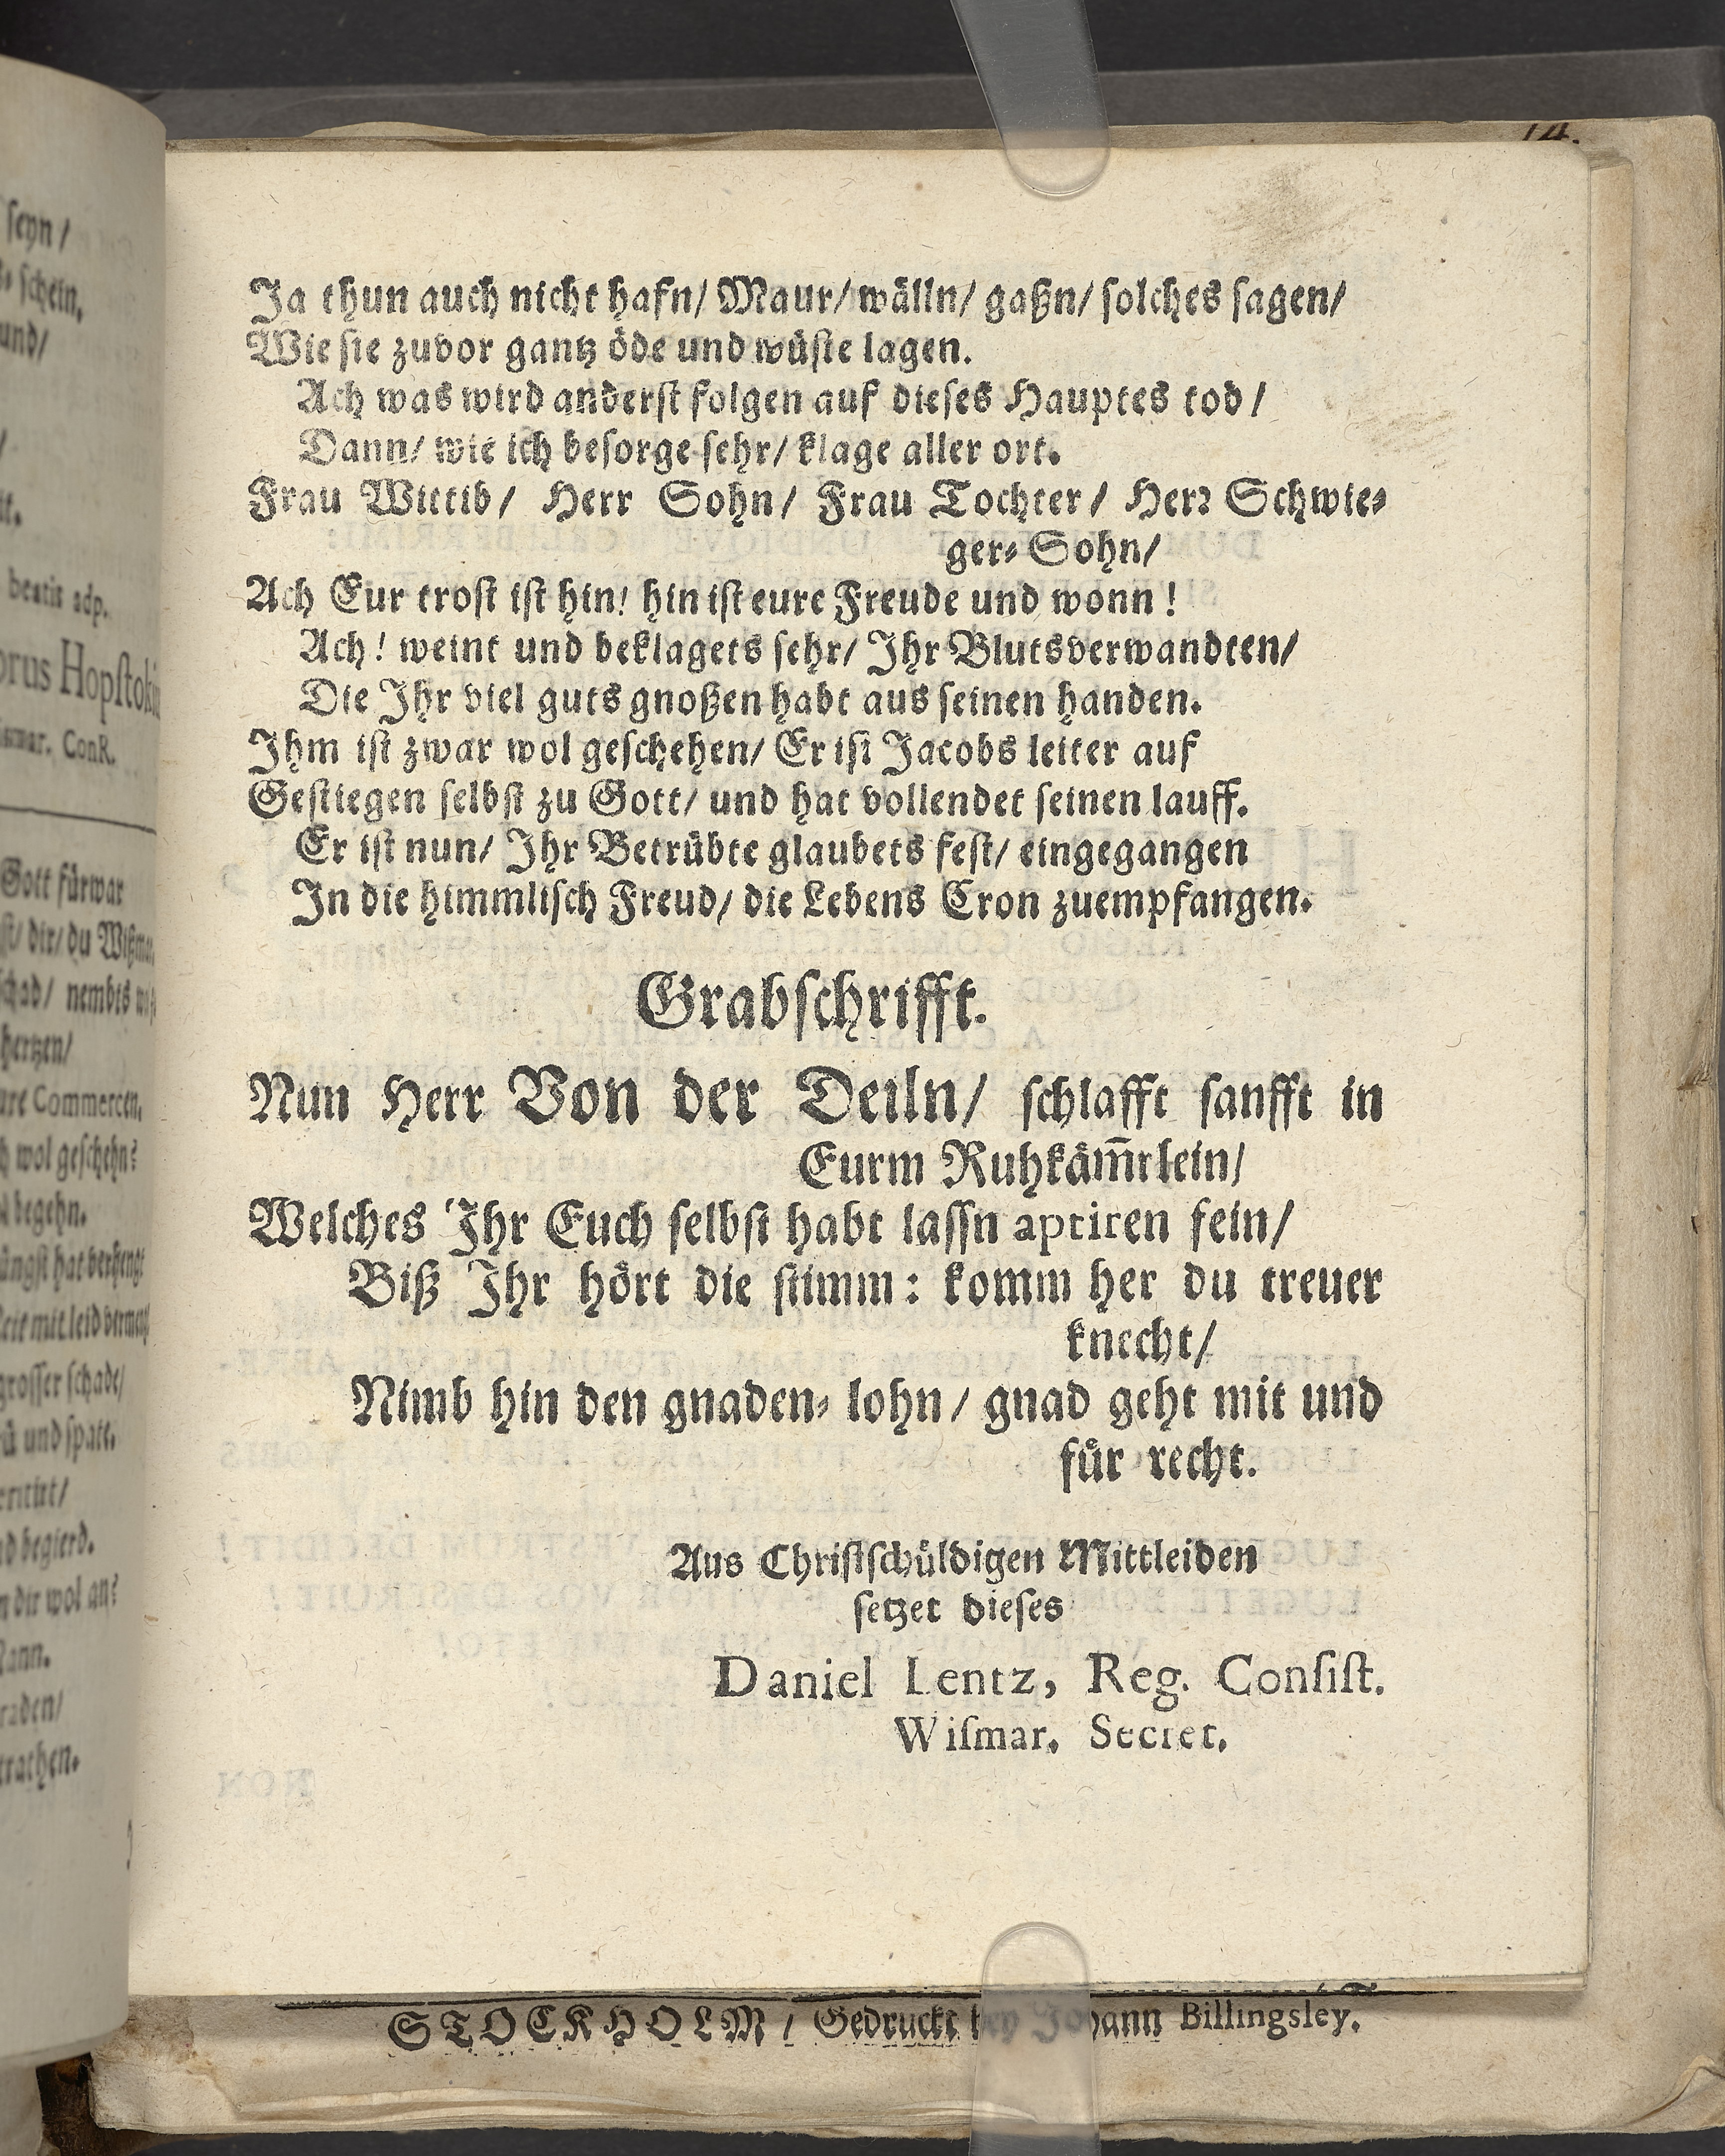 seyn/
schein,
und/
beatis adp.
orus Hopſtoki
ismar. ConR.
Gott fürwar
dir/ du Wißmar
schad/ nembts
hertzen/
Commercen,
wol geschehn?
begehn.
grosser schade/
und spatt.
begierd.
dir wol an?
14.
Ja thun auch nicht hafn/ Maur/ wälln/ gaßn/ ſolches ſagen/
Wie ſie zuvor gantz öde und wüſte lagen.
Ach was wird anderſt folgen auf dieſes Hauptes tod/
Dann/ wie ich beſorge ſehr/ klage aller ort.
Frau Wittib/ Herr Sohn/ Frau Tochter/ Herꝛ Schwie⸗
ger⸗Sohn/
Ach Eur troſt iſt hin! hin iſt eure Freude und wonn!
Ach! weint und beklagets ſehr/ Ihr Blutsverwandten/
Die Ihr viel guts gnoßen habt aus ſeinen handen.
Ihm iſt zwar wol geſchehen/ Er iſt Jacobs leiter auf
Geſtiegen ſelbſt zu Gott/ und hat vollendet ſeinen lauff.
Er iſt nun/ Ihr Betrübte glaubets feſt/ eingegangen
In die himmliſch Freud/ die Lebens Cron zuempfangen.
Grabſchrifft.
Nun Herr Von der Deiln/ ſchlafft ſanfft in
Eurm Ruhkäm̃rlein/
Welches Ihr Euch ſelbſt habt laſſn aptiren fein/
Biß Ihr hört die ſtimm: komm her du treuer
knecht/
Nimb hin den gnaden⸗lohn/ gnad geht mit und
für recht.
Aus Chriſtſchüldigen Mittleiden
ſetzet dieſes
Daniel Lentz, Reg. Conſiſt.
Wiſmar. Secret.
STOCKHOLM/ Gedruckt bey Johann Billingsley.